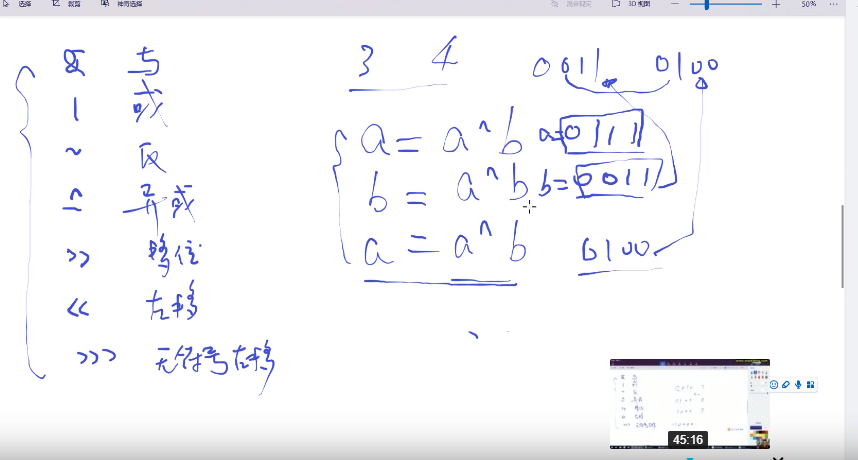 选择 裁剪 神奇选择 3D 视图 50%
& 与
| 或
~ 反
^ 异或
>> 移位
<< 左移
>>> 无符号左移
3 4 0011 0100
a = a^b a=0111
b = a^b b=0011
a = a^b 0100
45:16